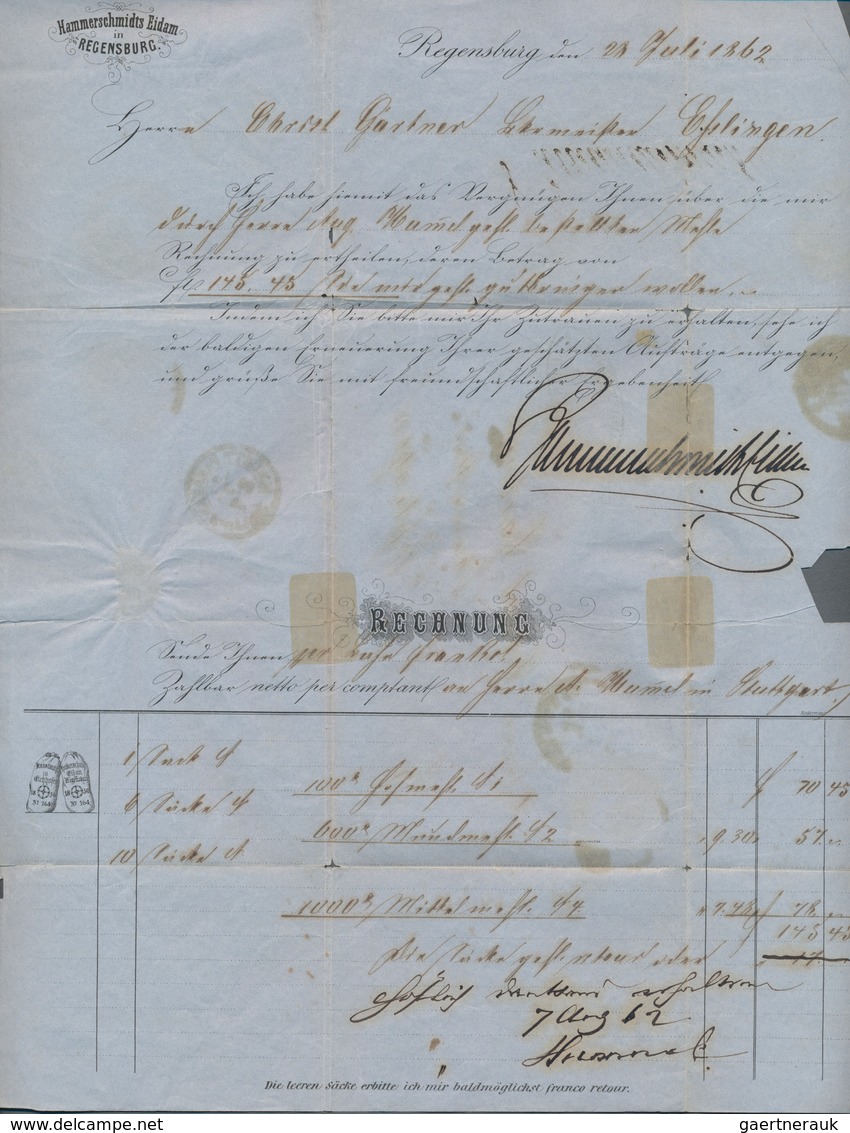 Hammerschmidts Eidam
in
REGENSBURG.
Regensburg den 28 Juli 1862
Herrn Christ Gärtner Eßlingen.
Ich habe hiemit das Vergnügen Ihnen über die mir
durch Herrn Aug Hummel gefl. bestellten Mehle
Rechnung zu ertheilen, deren Betrag von
148. 45 Sie mir gefl. wollen.
Indem ich Sie bitte mir Ihr Zutrauen zu erhalten, sehe ich
der baldigen Erneuerung Ihrer geschätzten Aufträge entgegen,
und grüße Sie mit freundschaftlicher Ergebenheit
Hammerschmidts Eidam
RECHNUNG
Sende Ihnen per franko
Zahlbar netto per comptant an Herrn A. Hummel in Stuttgart
1 Sack
100 1 70 45
6 Säcke
600 Mundmehl 2 9.30 57
10 Säcke
1000 Mittelmehl 4 7.48 78
148 45
Die Säcke gefl. retour oder
höflich dankend erhalten
7 Aug 62
Hummel
Die leeren Säcke erbitte ich mir baldmöglichst franco retour.
www.delcampe.net
gaertnerauk